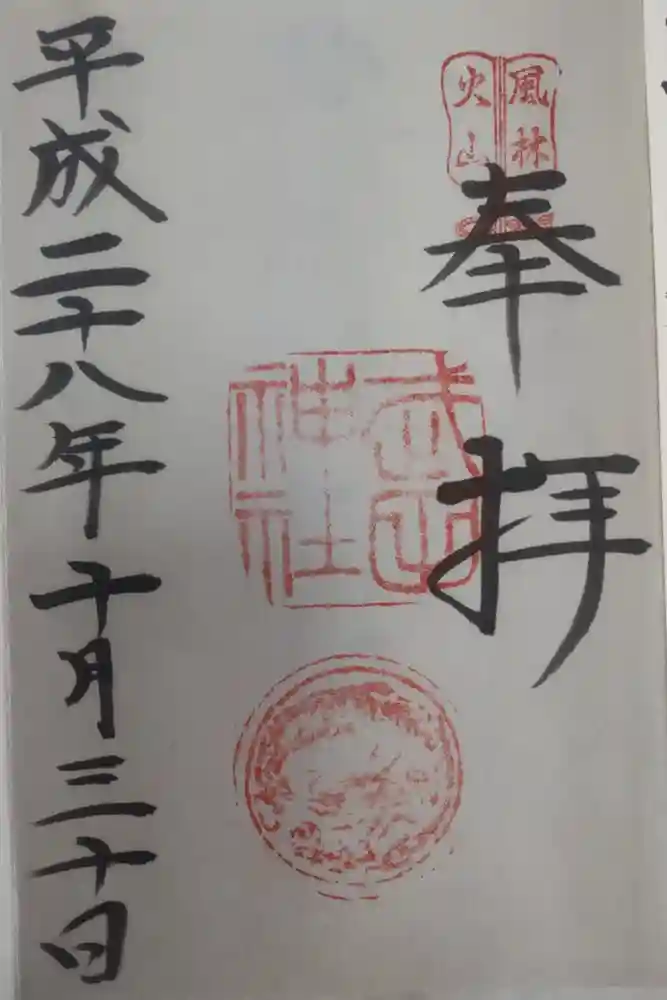 風林
火山
奉拝
武田
神社
平成二十八年十月三十日